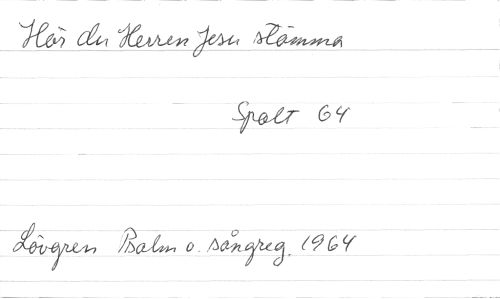 Hör du Herren Jesu stämma
Spalt 64
Lövgren Psalm o. sångreg. 1964